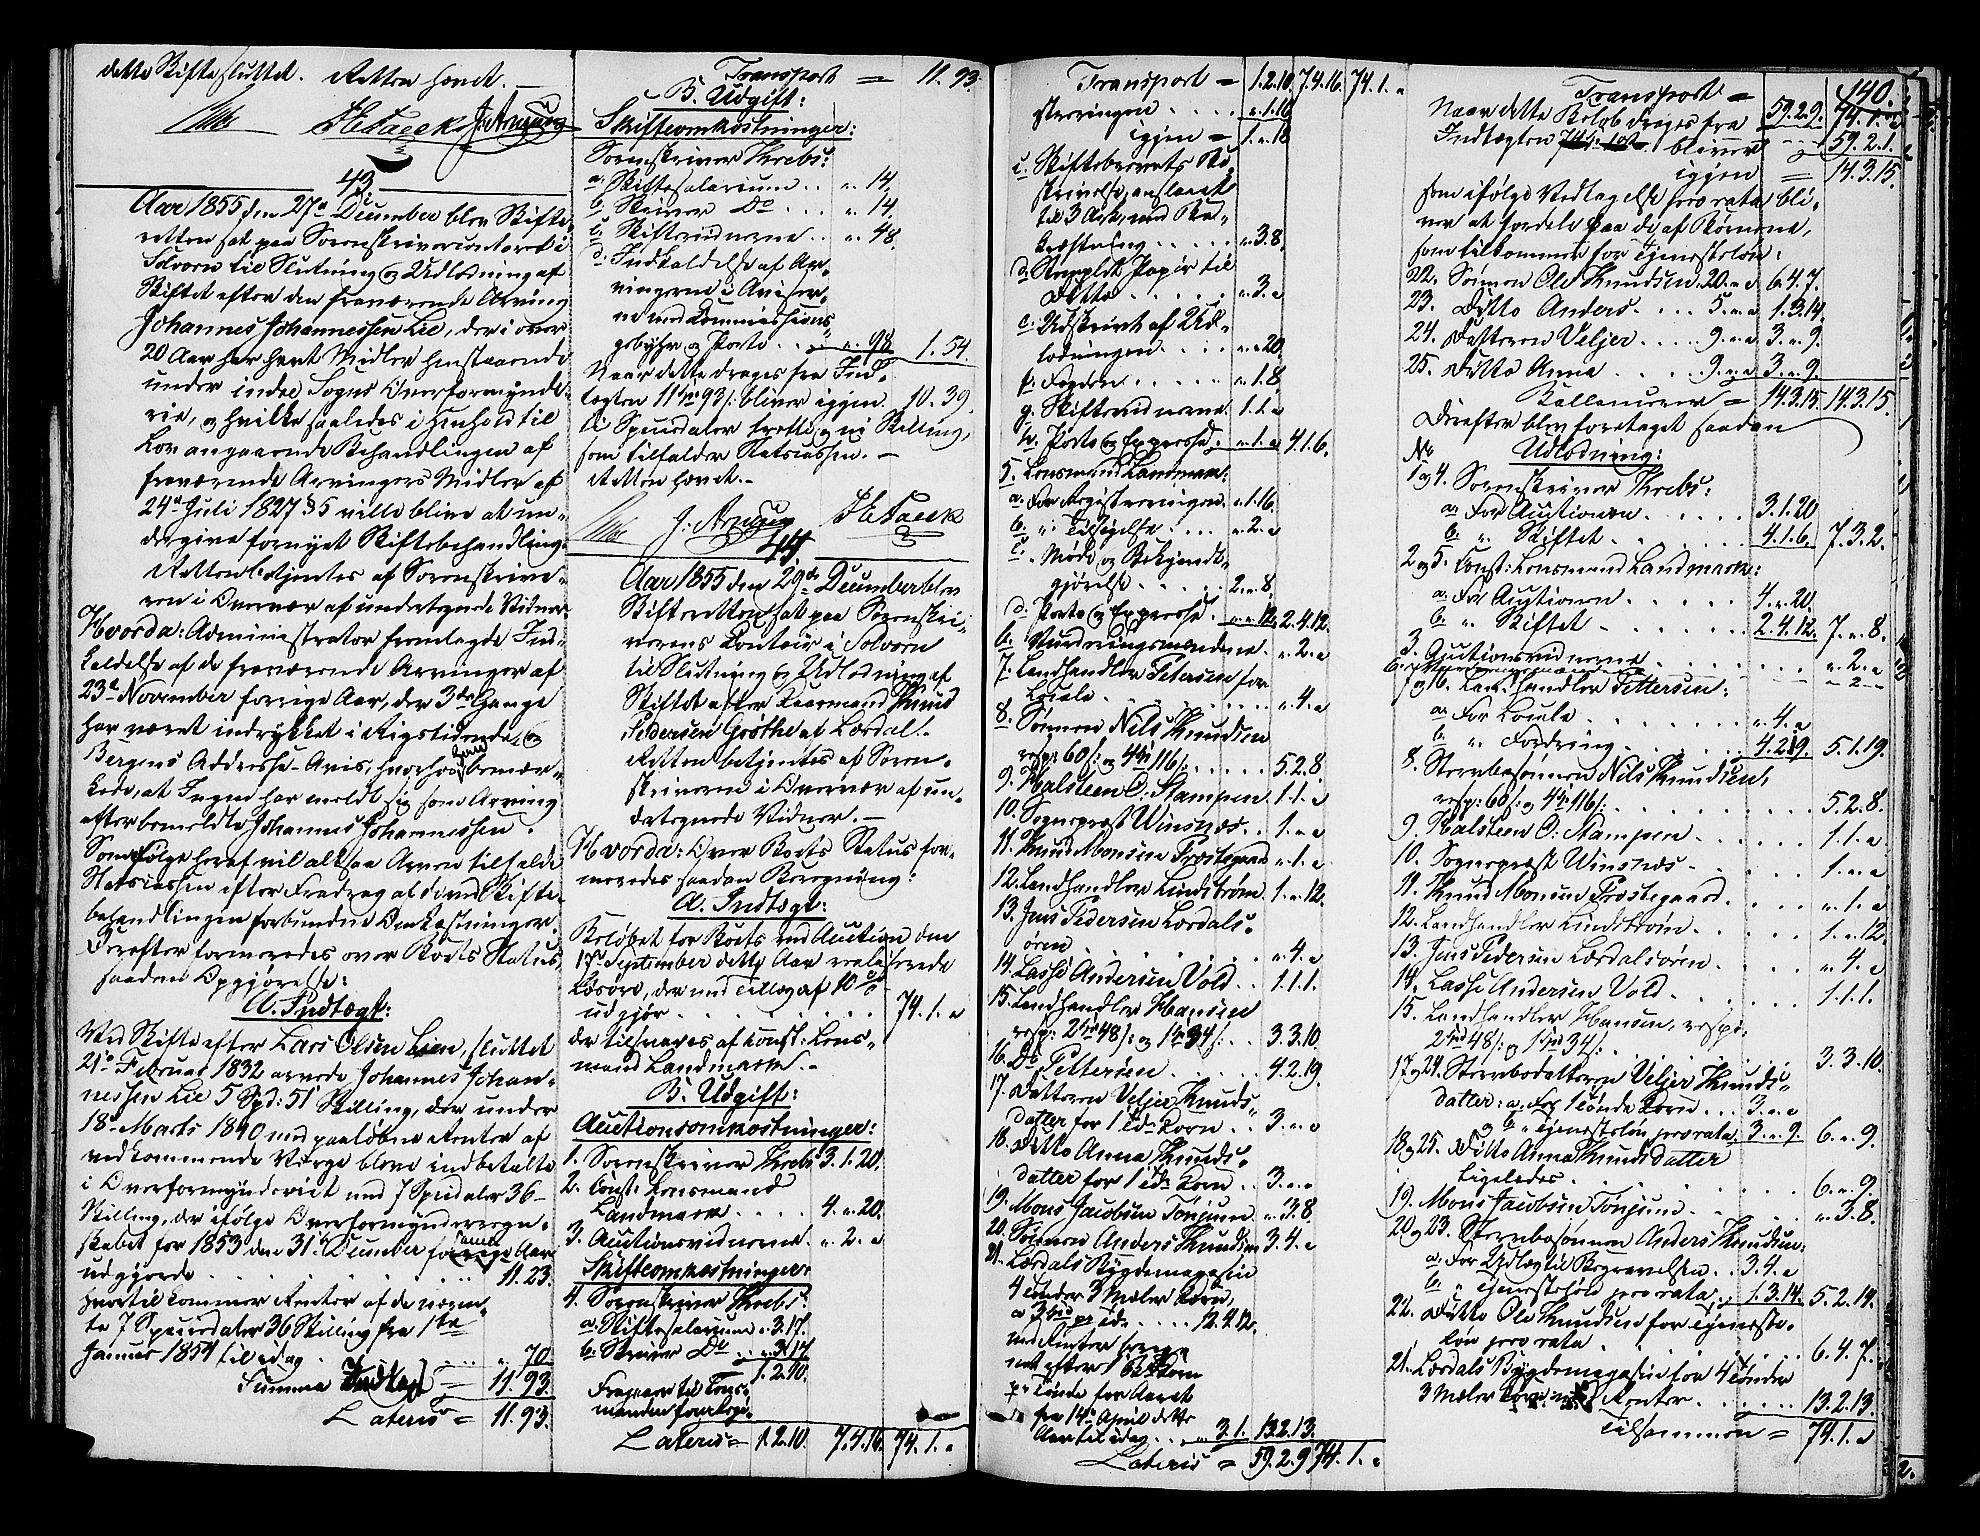 dette Skifte sluttet. Retten hævet.
43.
Aar 1855 den 27de December blev Skifte-
retten sat paa Sorenskrivercontoret i
Solvorn til Slutning og Udlodning af
Skiftet efter den fraværende Arving
Johannes Johannessen Lie, der i over
20 Aar har havt Midler henstaaende
under indre Sogns Overformynde-
rie, og hvilke saaledes i Henhold til
Lov angaaende Behandlingen af
fraværende Arvingers Midler af
24de Juli 1827 § 5 ville blive at un-
dergive fornyet Skiftebehandling.
Retten betjentes af Sorenskrive-
ren i Overvær af undertegnede Vidner.
Hvorda: Administrator fremlagde Ind-
kaldelse af de fraværende Arvinger af
23de November forrige Aar, der 3de Gange
har været indrykket i Rigstidende og
Bergens Addresse-Avis, hvorhos han bemær-
kede, at Ingen har meldt sig som Arving
efter bemeldte Johannes Johannessen.
Som Følge heraf vil altsaa Arven tilfalde
Statscassen efter Fradrag af de med Skifte-
behandlingen forbundne Omkostninger.
Derefter formeredes over Boets Status
saadan Opgjørelse:
A. Indtægt:
Ved Skifte efter Lars Olsen Lien, sluttet
21de Februar 1832 arvede Johannes Johan-
nessen Lie 5 Spd: 51 Skilling, der under
18de Marts 1840 med paaløbne Renter af
vedkommende Værge bleve indbetalte
i Overformynderiet med 7 Specidaler 36
Skilling, der ifølge Overformynderregn-
skabet for 1853 den 31te December samme Aar
udgjorde . . . 11. 23.
hvortil kommer Renter af de nævn-
te 7 Speciesdaler 36 Skilling fra 1ste
Januar 1854 til idag . . . " 70
Summa Indtægt = 11. 93.
Lateris = 11. 93.
Transport = 11. 93.
B. Udgift:
Skifteomkostninger:
Sorenskriver Krebs:
a. Skiftesalarium . . " 14.
b. Skriver Do . . . " 14.
c. Skiftevidnerne . . " 48.
d. Indkaldelse af Ar-
vingerne i Aviser-
ne med Commissions-
gebyhr og Porto . . . " 98 1. 54.
Naar dette drages fra Ind-
tægten 11 Spd 93 s: bliver igjen 10. 39.
ti Speciesdaler tretti og ni Skilling,
som tilfalder Statscassen. —
Retten hævet. —
44
Aar 1855 den 29de December blev
Skifteretten sat paa Sorenskri-
verens Contoir i Solvorn
til Slutning og Udlodning af
Skiftet efter Huusmand Knud
Pedersen Grøthe af Lærdal. -
Retten betjentes af Soren-
skriveren i Overvær af un-
dertegnede Vidner. —
Hvorda: Over Boets Status for-
meredes saadan Beregning:
A. Indtægt:
Beløbet for Boets ved Auction den
17de September dette Aar realiserede
Løsøre, der med Tillæg af 10 %
udgjør . . . 74. 1. "
der tilsvares af Const: Lens-
mand Landmark. -
B. Udgift:
Auctionsomkostninger:
1. Sorenskriver Krebs 3. 1. 20.
2. Const: Lensmand
Landmark . . . . 4. " 20.
3. Auctionsvidnerne . " 2. "
Skifteomkostninger:
4. Sorenskriver Krebs:
a. Skiftesalarium " 3. 17.
b. Skriver Do . . " 3. 17
1. 2. 10.
Lateris = 1. 2. 10. 7. 4. 16. 74. 1. "
Transport = 1. 2. 10. 7. 4. 16. 74. 1. "
streringen . . . . " 1. 16
igjen = 1. " 18
c. Skiftebrevets Be-
skrivelse, anslaaet
til 3 Ark, med Be-
kræftelse . . . . " 3. 8.
d. Stemplet Papir til
Ditto . . . . . " 3. "
e. Udskrivt af Ud-
lodningen . . . . " " 20.
f. Fogden . . . . " 1. 8.
g. Skiftevidnerne . 1. 1. "
h. Porto og Expresse . " 1. " 4. 1. 6.
5. Lensmand Landmark:
a. For Registreringen . " 1. 16.
b. " Tilsigelse . . " 2. "
c. " Møde og Bekjendt-
gjørelse . . . . 2. " 8.
d. Porto og Expresse . " " 12. 2. 4. 12.
6. Vurderingsmændene . " 2. "
7. Landhandler Petersen for
Locale . . . . " 4. "
8. Sønnen Nils Knudsen
resp: 60 s: og 4 Spd 116 s: . . . . 5. 2. 8.
9. Halsteen O: Stampen . 1. 1. "
10. Sogneprest Winsnæs . . 1. " "
11. Knud Monsen Prostegaard " 1. "
12. Landhandler Lindstrøm 1. " 12.
13. Jens Pedersen Lærdals-
øren . . . . " 4. "
14. Lasse Andersen Vold . . 1. 1. 1.
15. Landhandler Hansen
resp: 2 Spd 48 s: og 1 Spd 34 s: . . 3. 3. 10.
16. Do Pettersen . . . . 4. 2. 19.
17. Datteren Veljer Knuds-
datter for 1 Tde Korn . . 3. " "
18. Ditto Anna Knuds-
datter for 1 Tde Korn . . 3. " "
19. Mons Jacobsen Tønjum . " 3. 8.
20. Sønnen Anders Knudsen 3. 4. "
21. Lærdals Bygdemagasin
4 Tønder 3 Mæler Korn,
a 3 Spd pr Tde . . . . 12. 4. 12.
med Renter bereg-
net efter 1 Bpd Korn
pr Tønde for Aaret
fra 14de April dette
Aar til idag . . " 3. 1. 13. 2. 13.
Lateris = 59. 2. 9 74. 1. "
140.
Transport = 59. 2. 9. 74. 1. "
Naar dette Beløb drages fra
Indtægten . . . 59. 2. 1.
bliver igjen = 14. 3. 15.
som ifølge Vedtagelse pro rata bli-
ver at fordele paa de af Børnene,
som tilkommer for Tjenestløn:
22. Sønnen Ole Knudsen . 20. " " 6. 4. 7.
23. Ditto Anders . . . . 5. " " 1. 3. 14.
24. Datteren Veljer . . . . . 9. " " 3. " 9.
25. Ditto Anna . . . . 9. " " 3. " 9.
Ballancerer = 14. 3. 15. 14. 3. 15.
Derefter blev foretaget saadan
No Udlodning:
1 og 4. Sorenskriver Krebs:
a. For Auctionen . . . . . 3. 1. 20
b. " Skiftet . . . . . 4. 1. 6. 7. 3. 2.
2 og 5. Const: Lensmand Landmark:
a. For Auctionen . . . . . 4. " 20.
b. " Skiftet . . . . . 2. 4. 12. 7. " 8.
3. Auctionsvidnerne . . . . . " 2. "
6. Vurderingsmændene . . . . " 2 "
7 og 16. Landhandler Pettersen:
a. For Locale . . . . . " 4. "
b. " Fordring . . . . . 4. 2. 19. 5. 1. 19.
8. Sterbosønnen Nils Knudsen,
resp: 60 s: og 4 Spd 116 s: . . . . 5. 2. 8.
9. Halsteen O: Stampen . . . . . 1. 1. "
10. Sogneprest Winsnæs . . . . . 1. " "
11. Knud Monsen Prostegaard . . . . " 1. "
12. Landhandler Lindstrøm . . . . 1. " 12.
13. Jens Pedersen Lærdalsøren . . . . " 4. "
14. Lasse Andersen Vold . . . . . 1. 1. 1.
15. Landhandler Hansen, resp:
2 Spd 48 s: og 1 Spd 34 s: . . . . 3. 3. 10.
17 og 24. Sterbodatteren Veljer Knuds-
datter: a. For 1 Tønde Korn . . . 3. " "
b. " Tjenestløn pro rata 3. " 9. 6. " 9
18 og 25. Ditto Anna Knudsdatter
ligeledes . . . . . 6. " 9.
19. Mons Jacobsen Tønjum . . . . " 3. 8.
20 og 23. Sterbosønnen Anders Knudsen:
a. For Udlæg til Begravelsen . . 3. 4. "
b. " Tjenestløn pro rata . . 1. 3. 14. 5. 2. 14.
22. Ditto Ole Knudsen for Tjeneste-
løn pro rata . . . . 6. 4. 7.
21. Lærdals Bygdemagasin for 4 Tønder
3 Mæler Korn med Renter . . . . 13. 2. 13.
Tilsammen = 74. 1. "